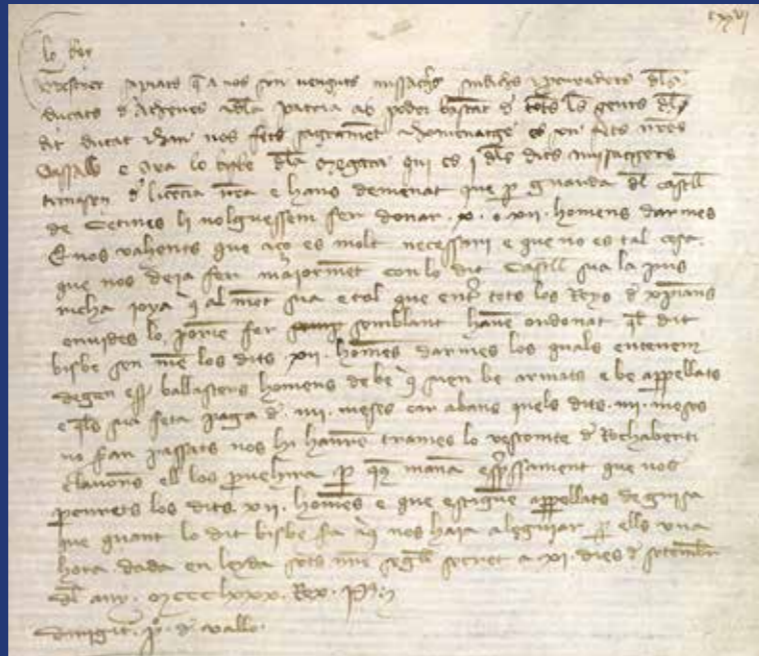 cxxvi
lo Rey
Tresorer sapiats q̃ a nos son venguts missatgẽs sindichs e procuradors dls
ducats d Athenes e dla patria ab poder bastat d tots les gents dls
dit ducat e han nos fets sagramẽt e homenatge e son fets nr̃es
vassalls e Ara lo bisbe dla Megara qui es i dls dits missatgers
tornasen d licencia nr̃a e hans demenat que p guarda dl castell
de Cetines li volguessem fer donar .x. o .xii. homens darmes
E nos vahents que aço es molt necessari e que no es tal cosa
que nos deja fer majormẽt con lo dit Castell sia la pus
richa joya q̃ al mõt sia e tal que entr̃ tots los Reys d xp̃ians
envides lo poriẽ fer semblant havẽ ordonat ql̃ dit
bisbe sen mẽ los dits xii. homẽs darmes los quals entenem
degen ess̃ ballasters homens de be q̃ sien be armats e be appellats
e qls̃ sia feta paga d iiii. meses car abans quels dits .iiii. meses
no seran passats nos hi haurẽ trames lo vescomte d Rochaberti
e lavors ell los provehira p q̃us manã esp̃ssament que vos
procurets los dits .xii. homẽs e que estiguẽ appellats de guisa
que quant lo dit bisbe sia aq̃ nos haia a laguiar p ells una
hora dada en leyda sots nr̃e segell secret a xi dies d setembr̃
dl any. Mccclxxx. Rex. P.
dirigit. P. d vallo